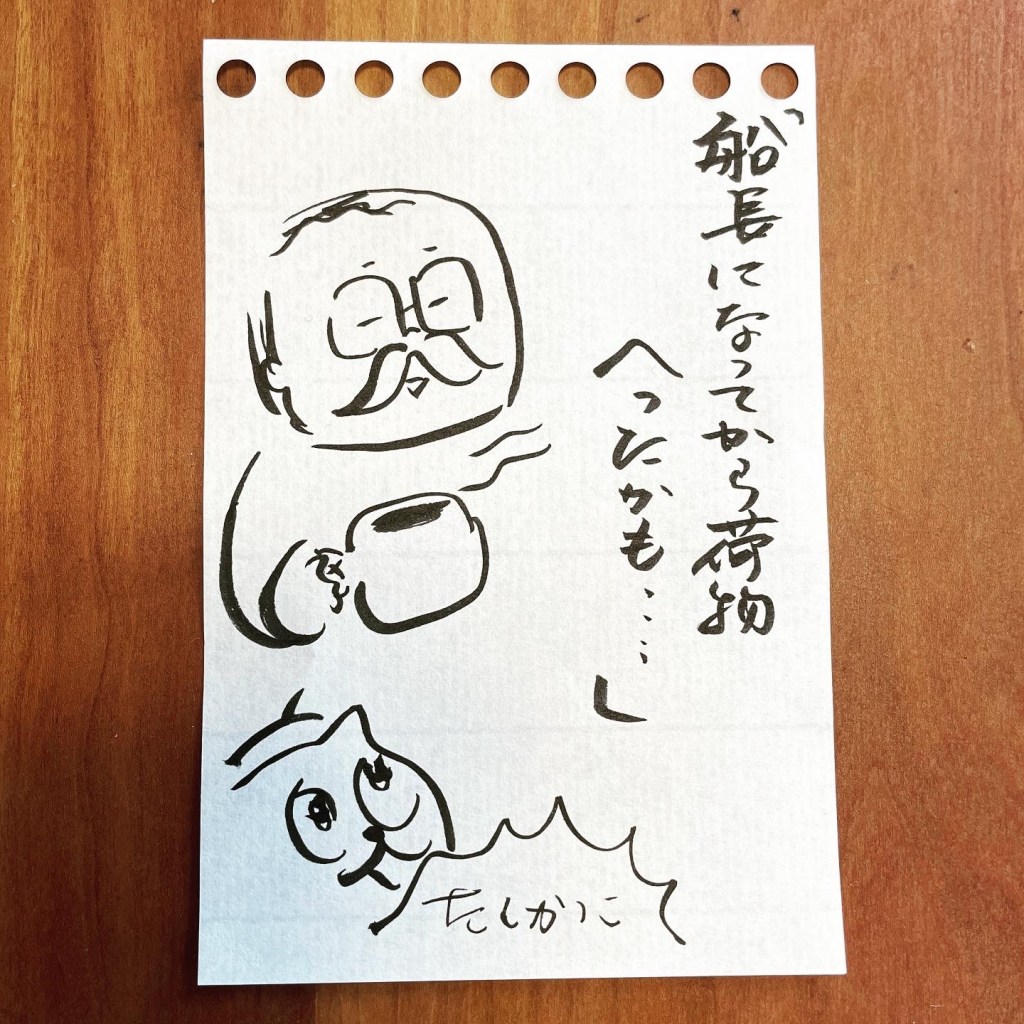 「船長になってから荷物
へったかも……」
たしかに